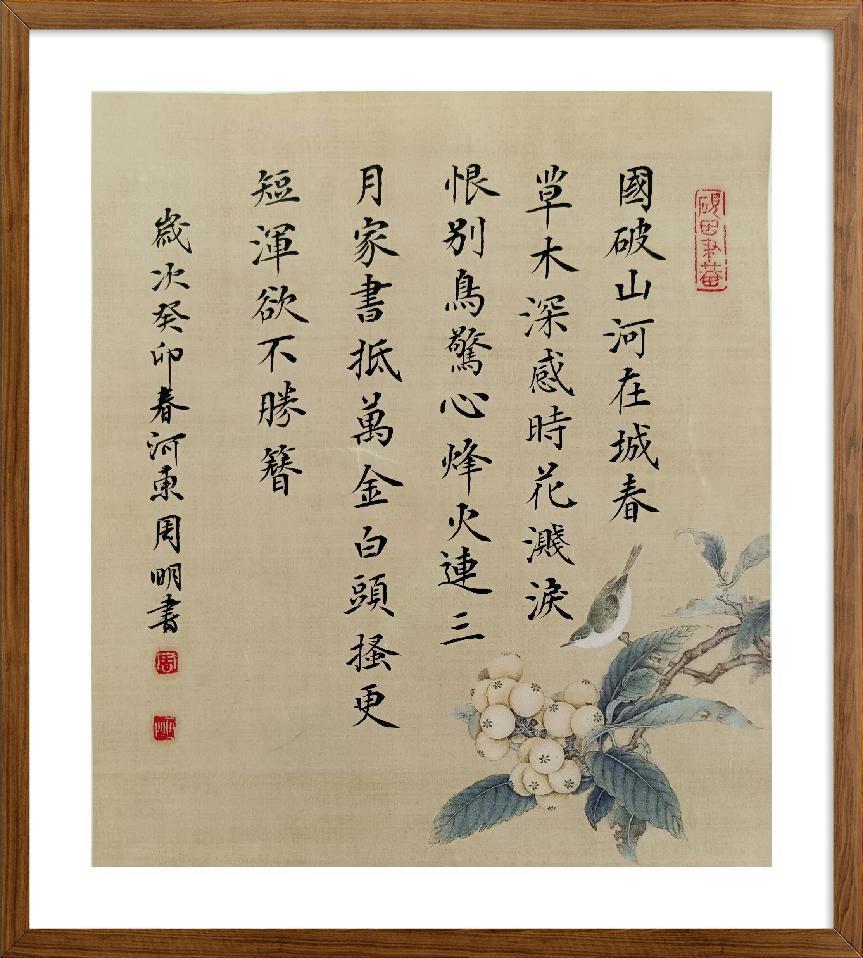 國破山河在城春
草木深感時花濺淚
恨别鳥驚心烽火連三
月家書抵萬金白頭搔更
短渾欲不勝簪
歲次癸卯春河東周明書
周